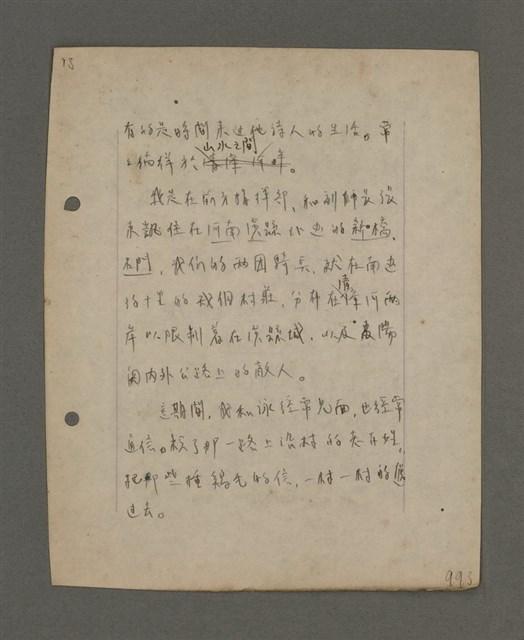 13
有的是時間來過他詩人的生活。常
山水之間
徜徉於。
我是在前方指揮部、和副師長張
住在河南溪縣北邊的新橋、
石門,我們的兩團騎兵,就在南邊
約十里的幾個村莊,分布在清河兩
岸以限制着在溪縣城,以及襄陽
関内外公路上的敵人。
這期間,我和詠經常見面,也經常
通信。教了那一路上沿村的老百姓,
把那些種鷄毛的信,一村一村的送
過去。
993